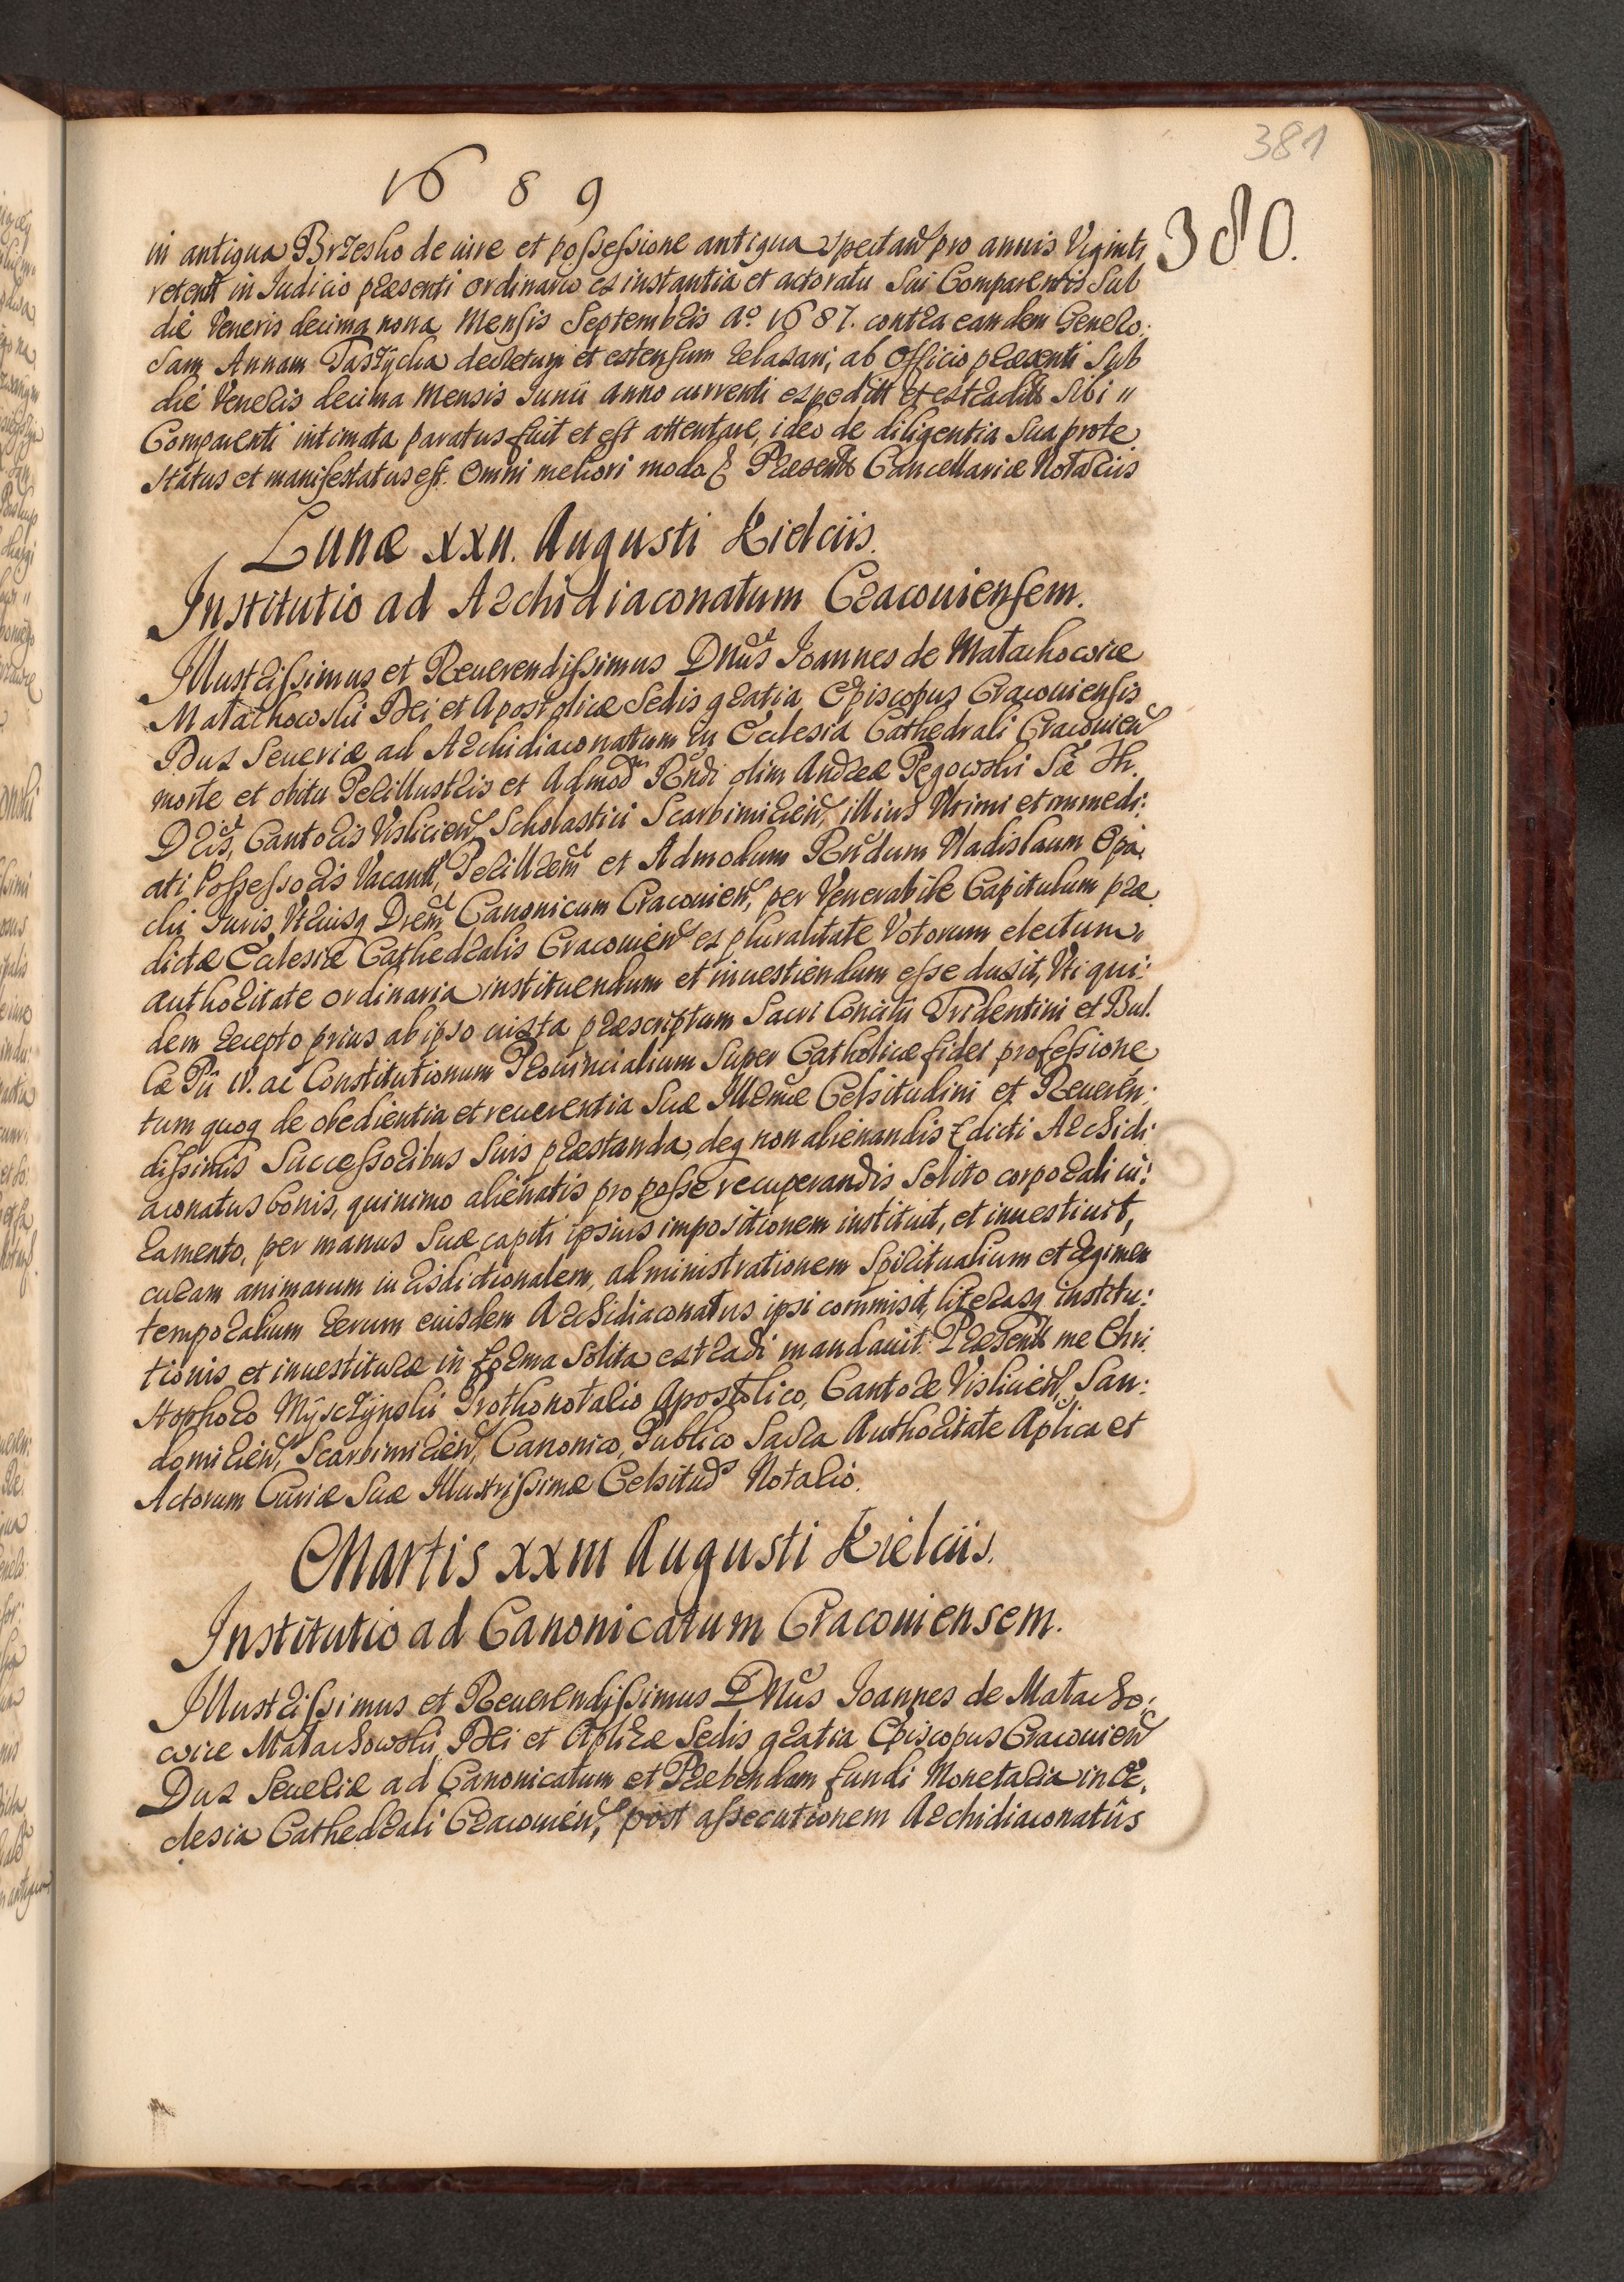 381
1689
380.
in antiqua Brzesko de iure et possessione antiqua spectan pro annis Viginti
retent in Iudicio praesenti ordinario ex instantia et actoratu Sui Comparentis Sub
die Veneris decima nona Mensis Septembris Aº 1687. contra eandem Genero:
sam Annam decretum et extensum relaxari, ab Officio praesenti Sub
die Veneris decima Mensis Iunii anno currenti expedit et extradit Sibi "
Comparenti intimata paratus fuit et est attentare, ideo de diligentia Sua prote
status et manifestatus est. Omni meliori modo & Praesent Cancellariae Notariis
Lunae XXII. Augusti Kielciis.
Institutio ad Archidiaconatum Cracouiensem.
Illustrissimus et Reuerendissimus Dnus Ioannes de Małachowice
Małachowski Dei et Apostolicae Sedis gratia Episcopus Cracouiensis
Dux Seueriae ad Archidiaconatum in Ecclesia Cathedrali Cracouien
morte et obitu Perillustris et Admod Rndi olim Andreae Pegowski Sae Th.
Dris, Cantoris Vislicien, Scholastici Scarbimirien, illius Vltimi et immedi:
ati Possessoris Vacant, Perillrem et Admodum Rndum Vladislaum Opa,
cki Iuris Vtriusq Drem Canonicum Cracouien, per Venerabile Capitulum prae
dictae Ecclesiae Cathedralis Cracouien ex pluralitate Votorum electum,
authoritate ordinaria instituendum et inuestiendum esse duxit, Vti qui:
dem recepto prius ab ipso iuxta praescriptum Sacri Concilii Tridentini et Bul.
lae Pii IV. ac Constitutionum Prouincialium Super Catholicae fidei professione
tum quoq de obedientia et reuerentia Suae Illrmae Celsitudini et Reueren:
dissimis Successoribus Suis praestanda, deq non alienandis dicti Archidi
aconatus bonis, quinimo alienatis pro posse recuperandis Solito corporali iu:
ramento, per manus Suae capiti ipsius impositionem instituit, et inuestiuit,
curam animarum iurisdictionalem, administrationem Spiritualium et regimen
temporalium rerum eiusdem Archidiaconatus ipsi commisit, literasq institu:
tionis et inuestiturae in forma Solita extradi mandauit. Praesent me Chri
stophoro Mÿsczÿnski Prothonotario Apostolico, Cantore Vislicien, San:
domirien, Scarbimirien, Canonico, Publico Sacra Authoritate Aplica et
Actorum Curiae Suae Illustrissimae Celsitud Notario.
Martis XXIII Augusti Kielciis.
Institutio ad Canonicatum Cracouiensem.
Illustrissimus et Reuerendissimus Dnus Ioannes de Małacho:
wice Małachowski, Dei et Aplicae Sedis gratia Episcopus Cracouien
Dux Seueriae ad Canonicatum et Praebendam fundi Monetaria in Ec,
clesia Cathedrali Cracouien, post assecutionem Archidiaconatus